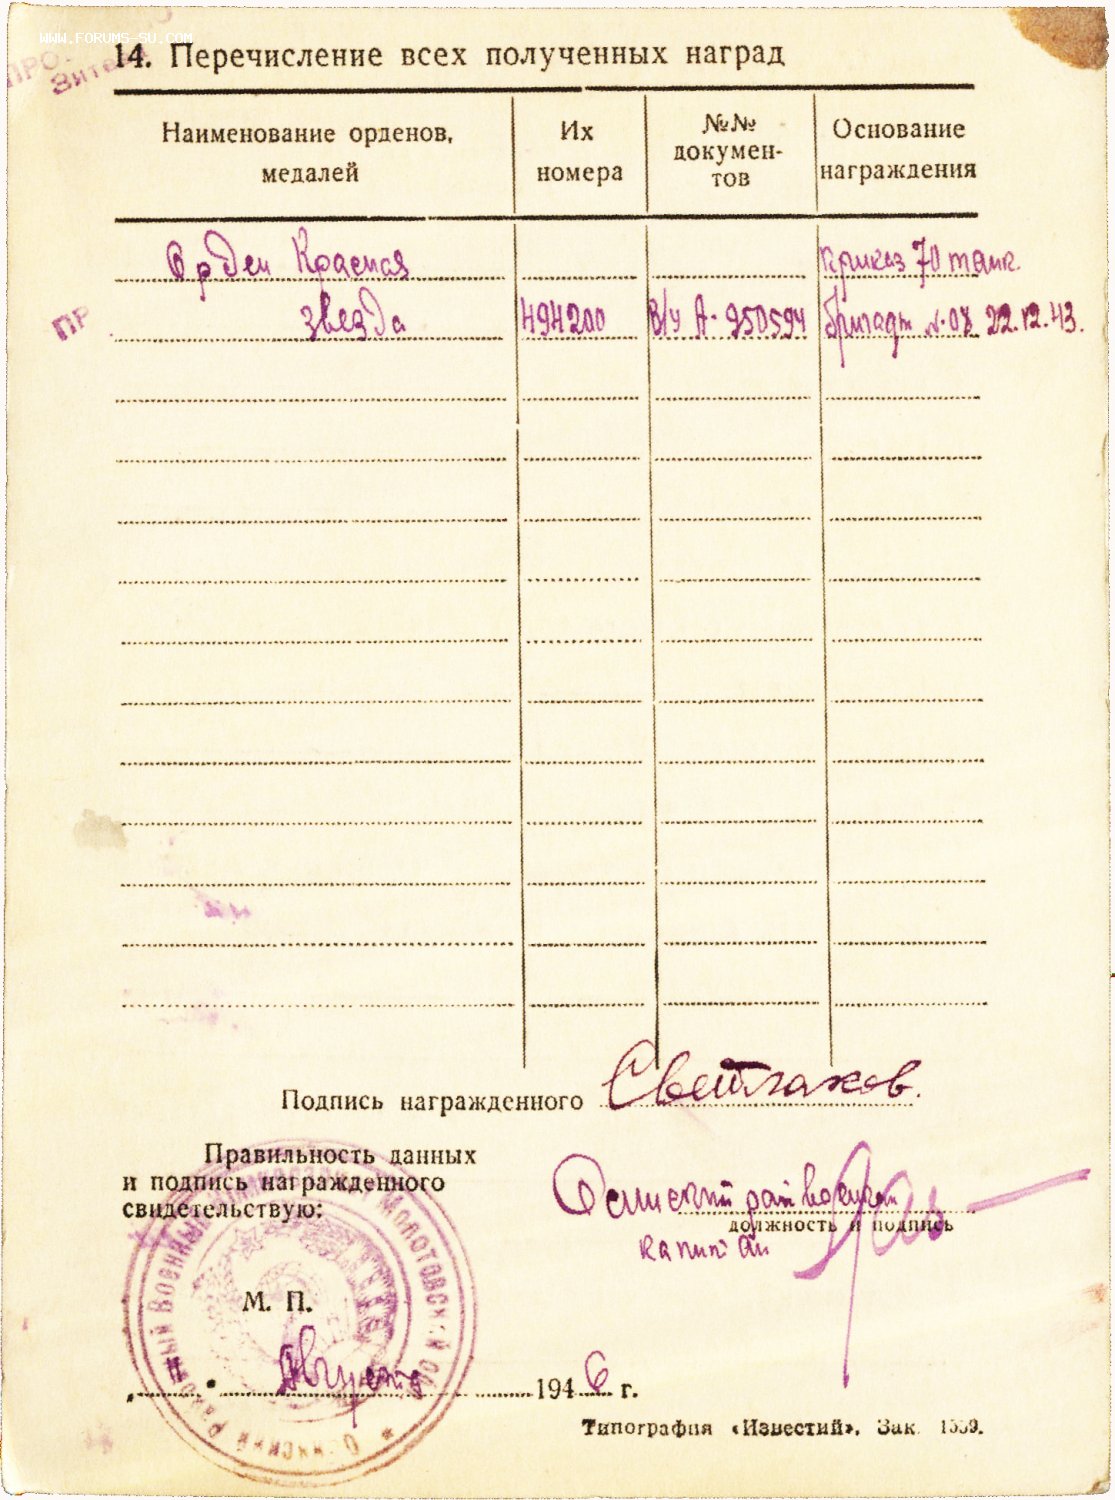 WWW.FORUMS-SU.COM
14. Перечисление всех полученных наград
Наименование орденов, медалей
Их номера
№№ докумен-тов
Основание награждения
Орден Красная
приказ 70 танк.
звезда
494200
В/у А-950594
бригады №-08 22.12.43.
ПР
Подпись награжденного Светлаков.
Правильность данных
и подпись награжденного
свидетельствую:
Осинский райвоенком
должность и подпись
капитан
М. П.
Августа 1946 г.
Осинский Районный Военный Молотовской
Типография «Известий». Зак. 1559.